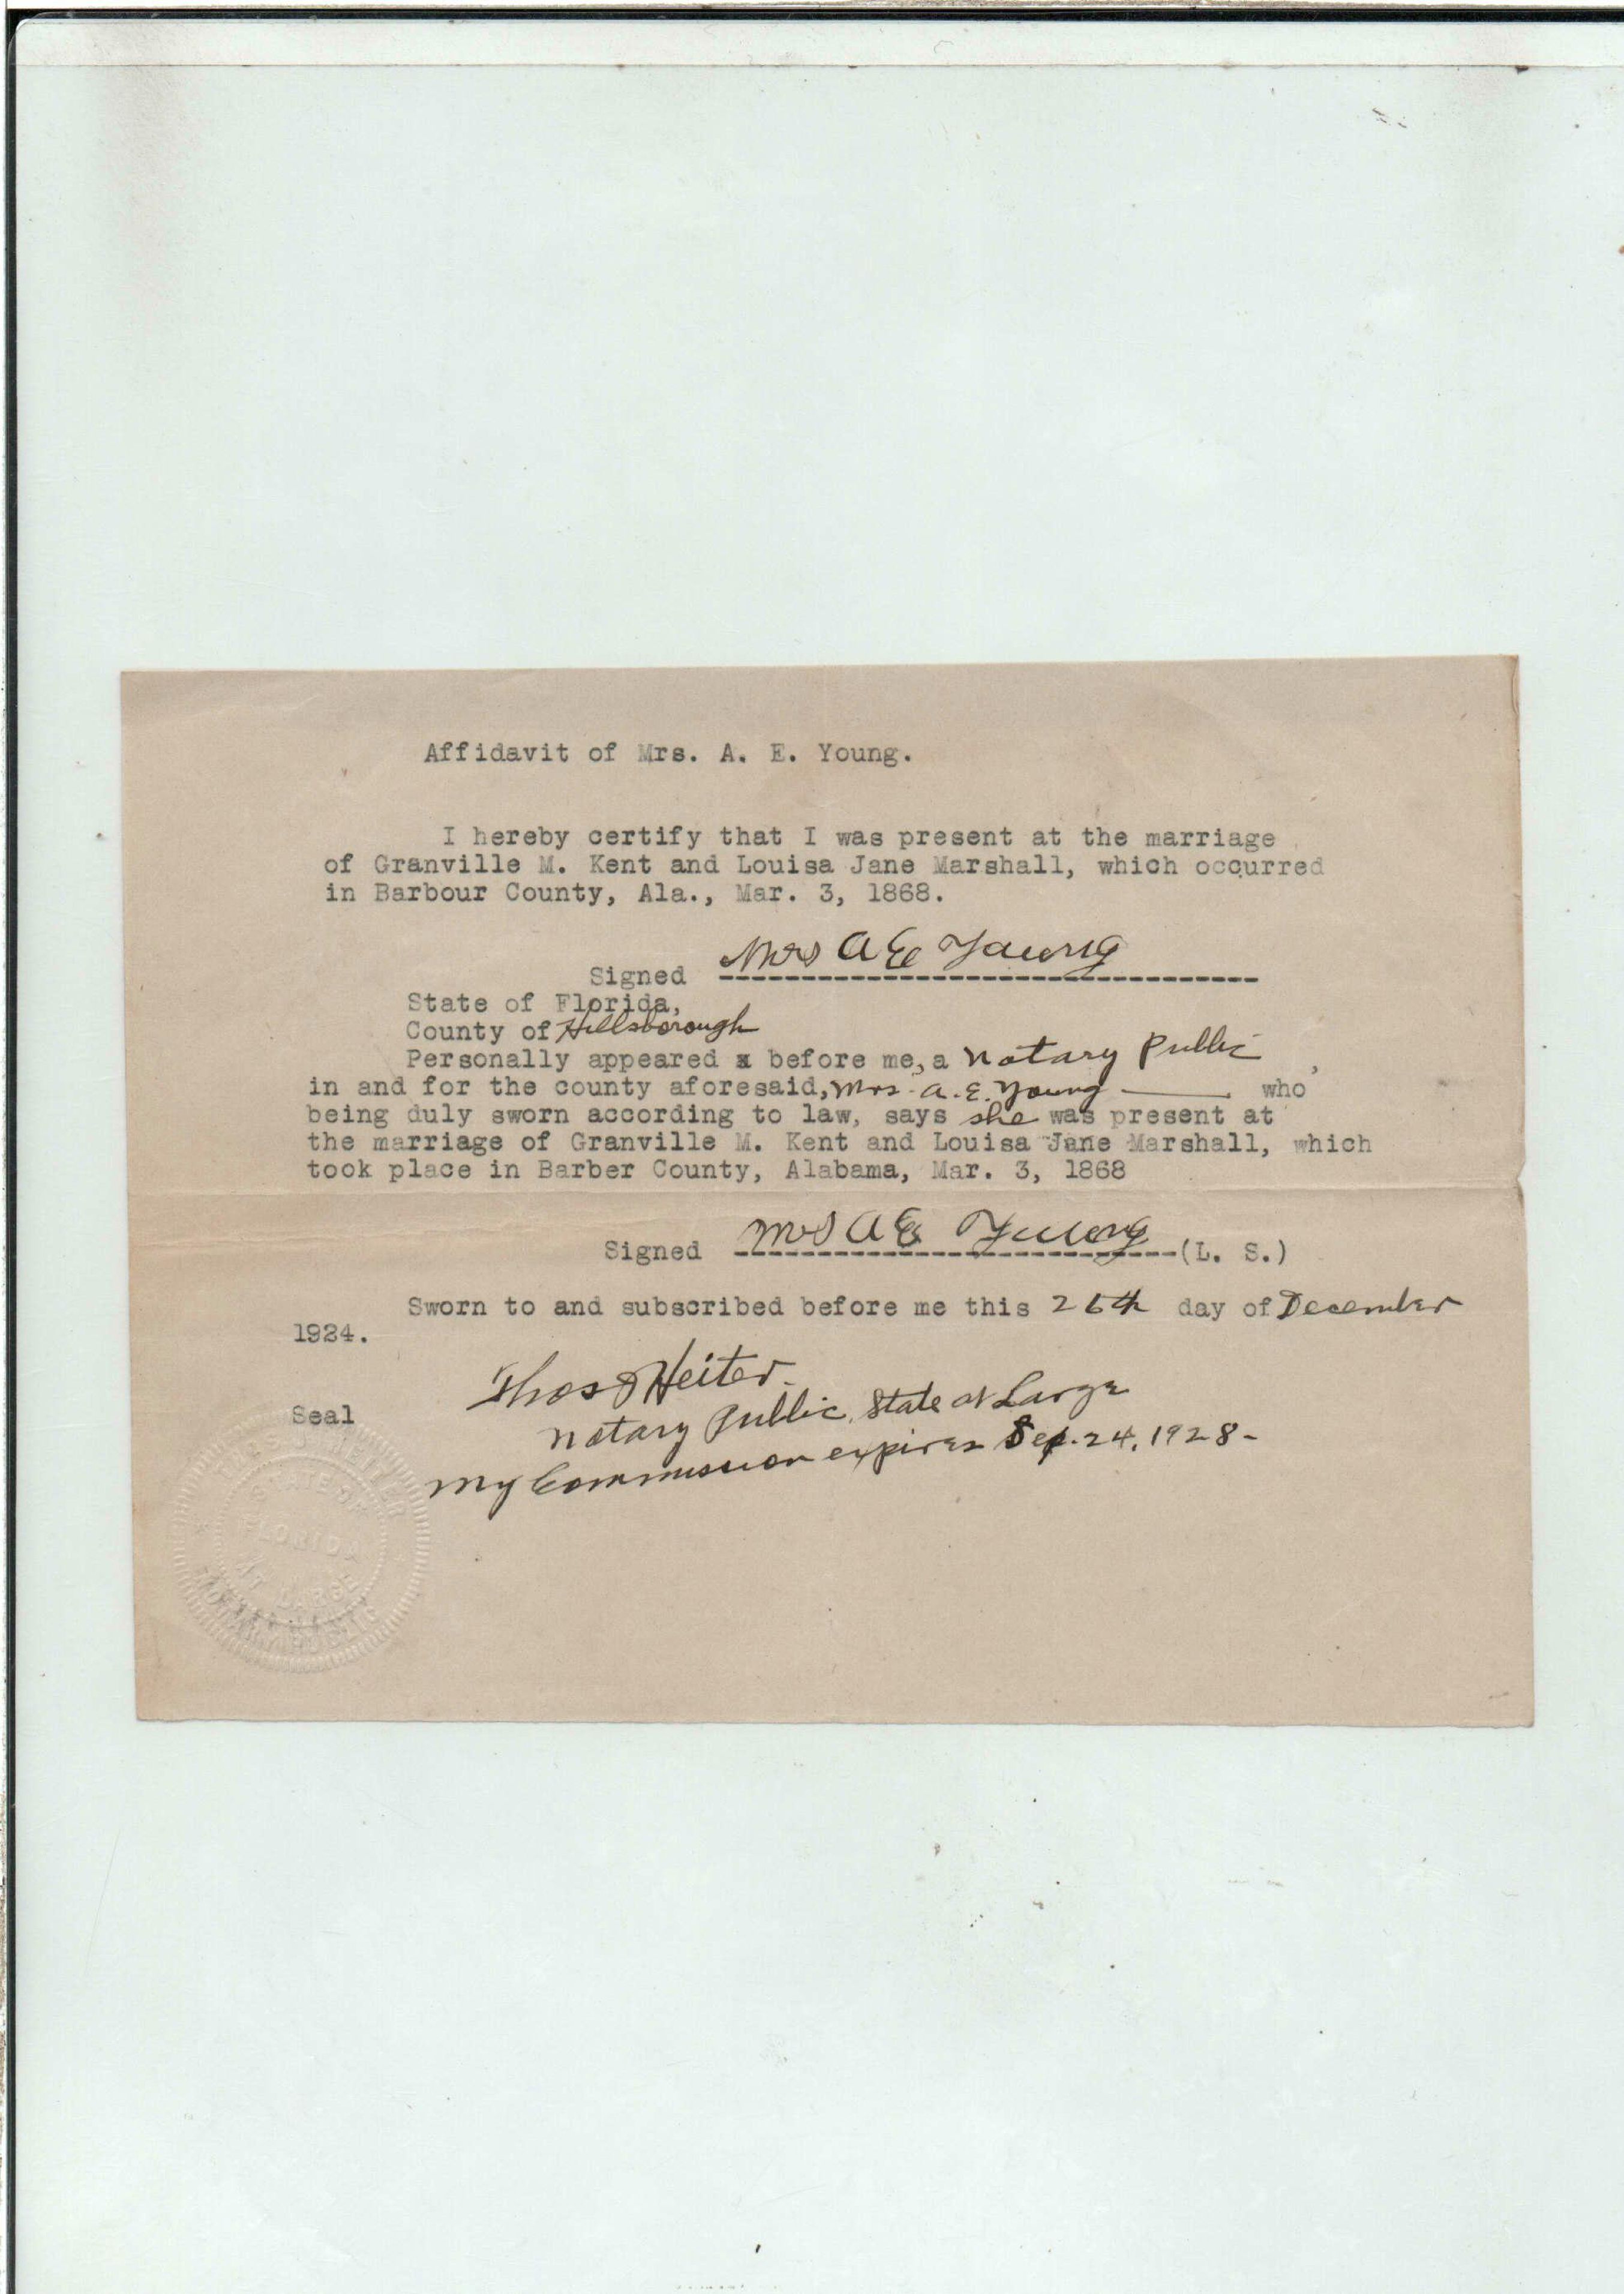 Affidavit of Mrs. A. E. Young.
I hereby certify that I was present at the marriage
of Granville M. Kent and Louisa Jane Marshall, which occurred
in Barbour County, Ala., Mar. 3, 1868.
Signed Mrs A E Young
State of Florida,
County of Hillsborough
Personally appeared x before me, a Notary Public,
in and for the county aforesaid, Mrs. A. E. Young who
being duly sworn according to law, says she was present at
the marriage of Granville M. Kent and Louisa Jane Marshall, which
took place in Barber County, Alabama, Mar. 3, 1868
Signed Mrs A E Young (L. S.)
Sworn to and subscribed before me this 26th day of December
1924.
Thos J Heiter.
Notary Public, State at Large
Seal
My Commission expires Sep. 24, 1928-
STATE OF
FLORIDA
AT LARGE
NOTARY PUBLIC